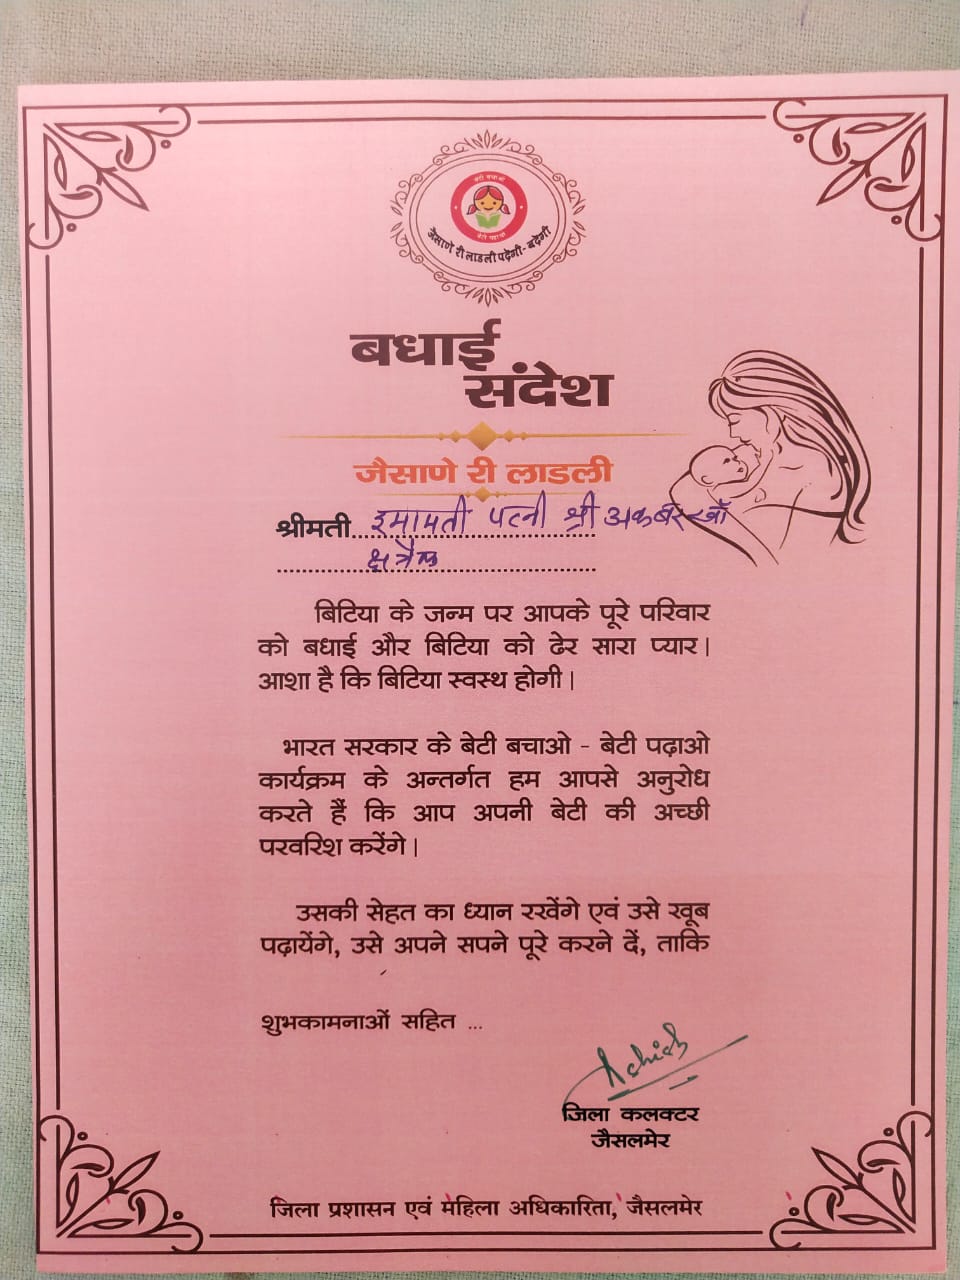 बेटी बचाओ
बेटी पढ़ाओ
जैसाणे री लाडली पढ़ेगी - बढ़ेगी
बधाई
संदेश
जैसाणे री लाडली
श्रीमती इमामती पत्नी श्री अकबर खाँ
बिटिया के जन्म पर आपके पूरे परिवार
को बधाई और बिटिया को ढेर सारा प्यार।
आशा है कि बिटिया स्वस्थ होगी।
भारत सरकार के बेटी बचाओ - बेटी पढ़ाओ
कार्यक्रम के अन्तर्गत हम आपसे अनुरोध
करते हैं कि आप अपनी बेटी की अच्छी
परवरिश करेंगे।
उसकी सेहत का ध्यान रखेंगे एवं उसे खूब
पढ़ायेंगे, उसे अपने सपने पूरे करने दें, ताकि
शुभकामनाओं सहित ...
जिला कलक्टर
जैसलमेर
जिला प्रशासन एवं महिला अधिकारिता, जैसलमेर